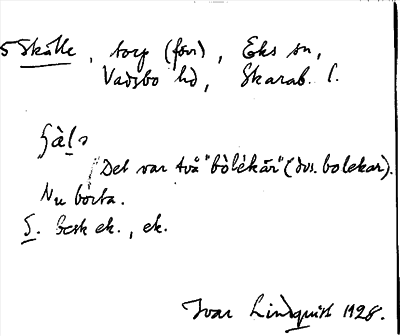 5 Skälle, torp (förr), Eks sn,
Vadsbo hd, Skarab. l.
Det var två "bòlékàr" (dvs. bolekar).
Nu borta.
S. besk ek., ek.
Ivar Lindquist 1928.